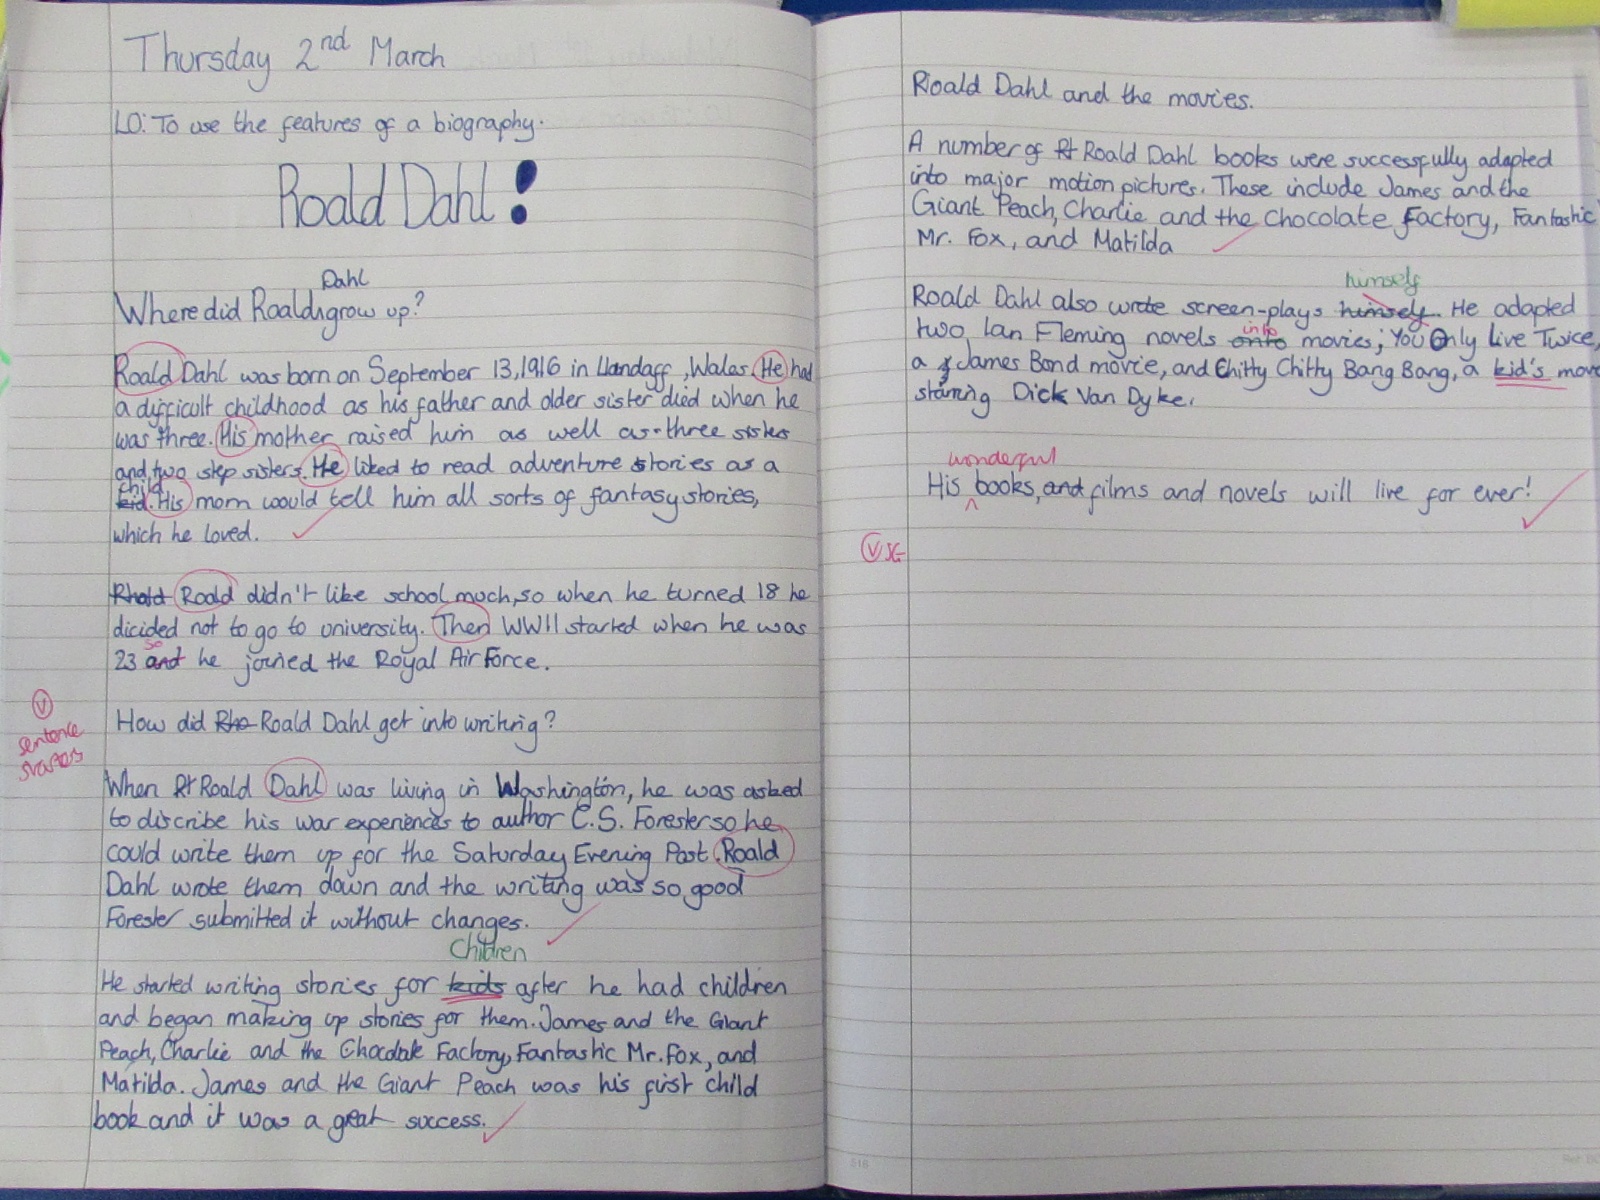 Thursday 2nd March
LO: To use the features of a biography.
Roald Dahl!
Dahl
Where did Roald grow up?
Roald Dahl was born on September 13, 1916 in Llandaff, Wales. He had
a difficult childhood as his father and older sister died when he
was three. His mother raised him as well as three sisters
and two step sisters. He liked to read adventure stories as a
child
kid. His mom would tell him all sorts of fantasy stories,
which he loved.
Rhold Roald didn't like school much, so when he turned 18 he
dicided not to go to university. Then WWII started when he was
so
23 and he joined the Royal Air Force.
How did Rho Roald Dahl get into writing?
V
sentence
starters
When Rt Roald Dahl was living in Washington, he was asked
to discribe his war experiences to author C.S. Forester so he
could write them up for the Saturday Evening Post. Roald
Dahl wrote them down and the writing was so good
Forester submitted it without changes.
Children
He started writing stories for kids after he had children
and began making up stories for them. James and the Giant
Peach, Charlie and the Chocolate Factory, Fantastic Mr. Fox, and
Matilda. James and the Giant Peach was his first child
book and it was a great success.
Roald Dahl and the movies.
A number of Rt Roald Dahl books were successfully adapted
into major motion pictures. These include James and the
Giant Peach, Charlie and the Chocolate Factory, Fantastic
Mr. Fox, and Matilda
himself
Roald Dahl also wrote screen-plays himself. He adapted
into
two Ian Fleming novels onto movies; You Only Live Twice,
a James Bond movie, and Chitty Chitty Bang Bang, a kid's
starring Dick Van Dyke.
wonderful
His books, and films and novels will live for ever!
V SG